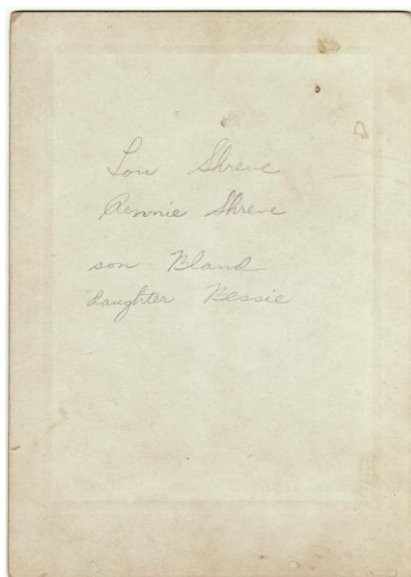 Lou Shreve
Shreve
son Bland
daughter Bessie